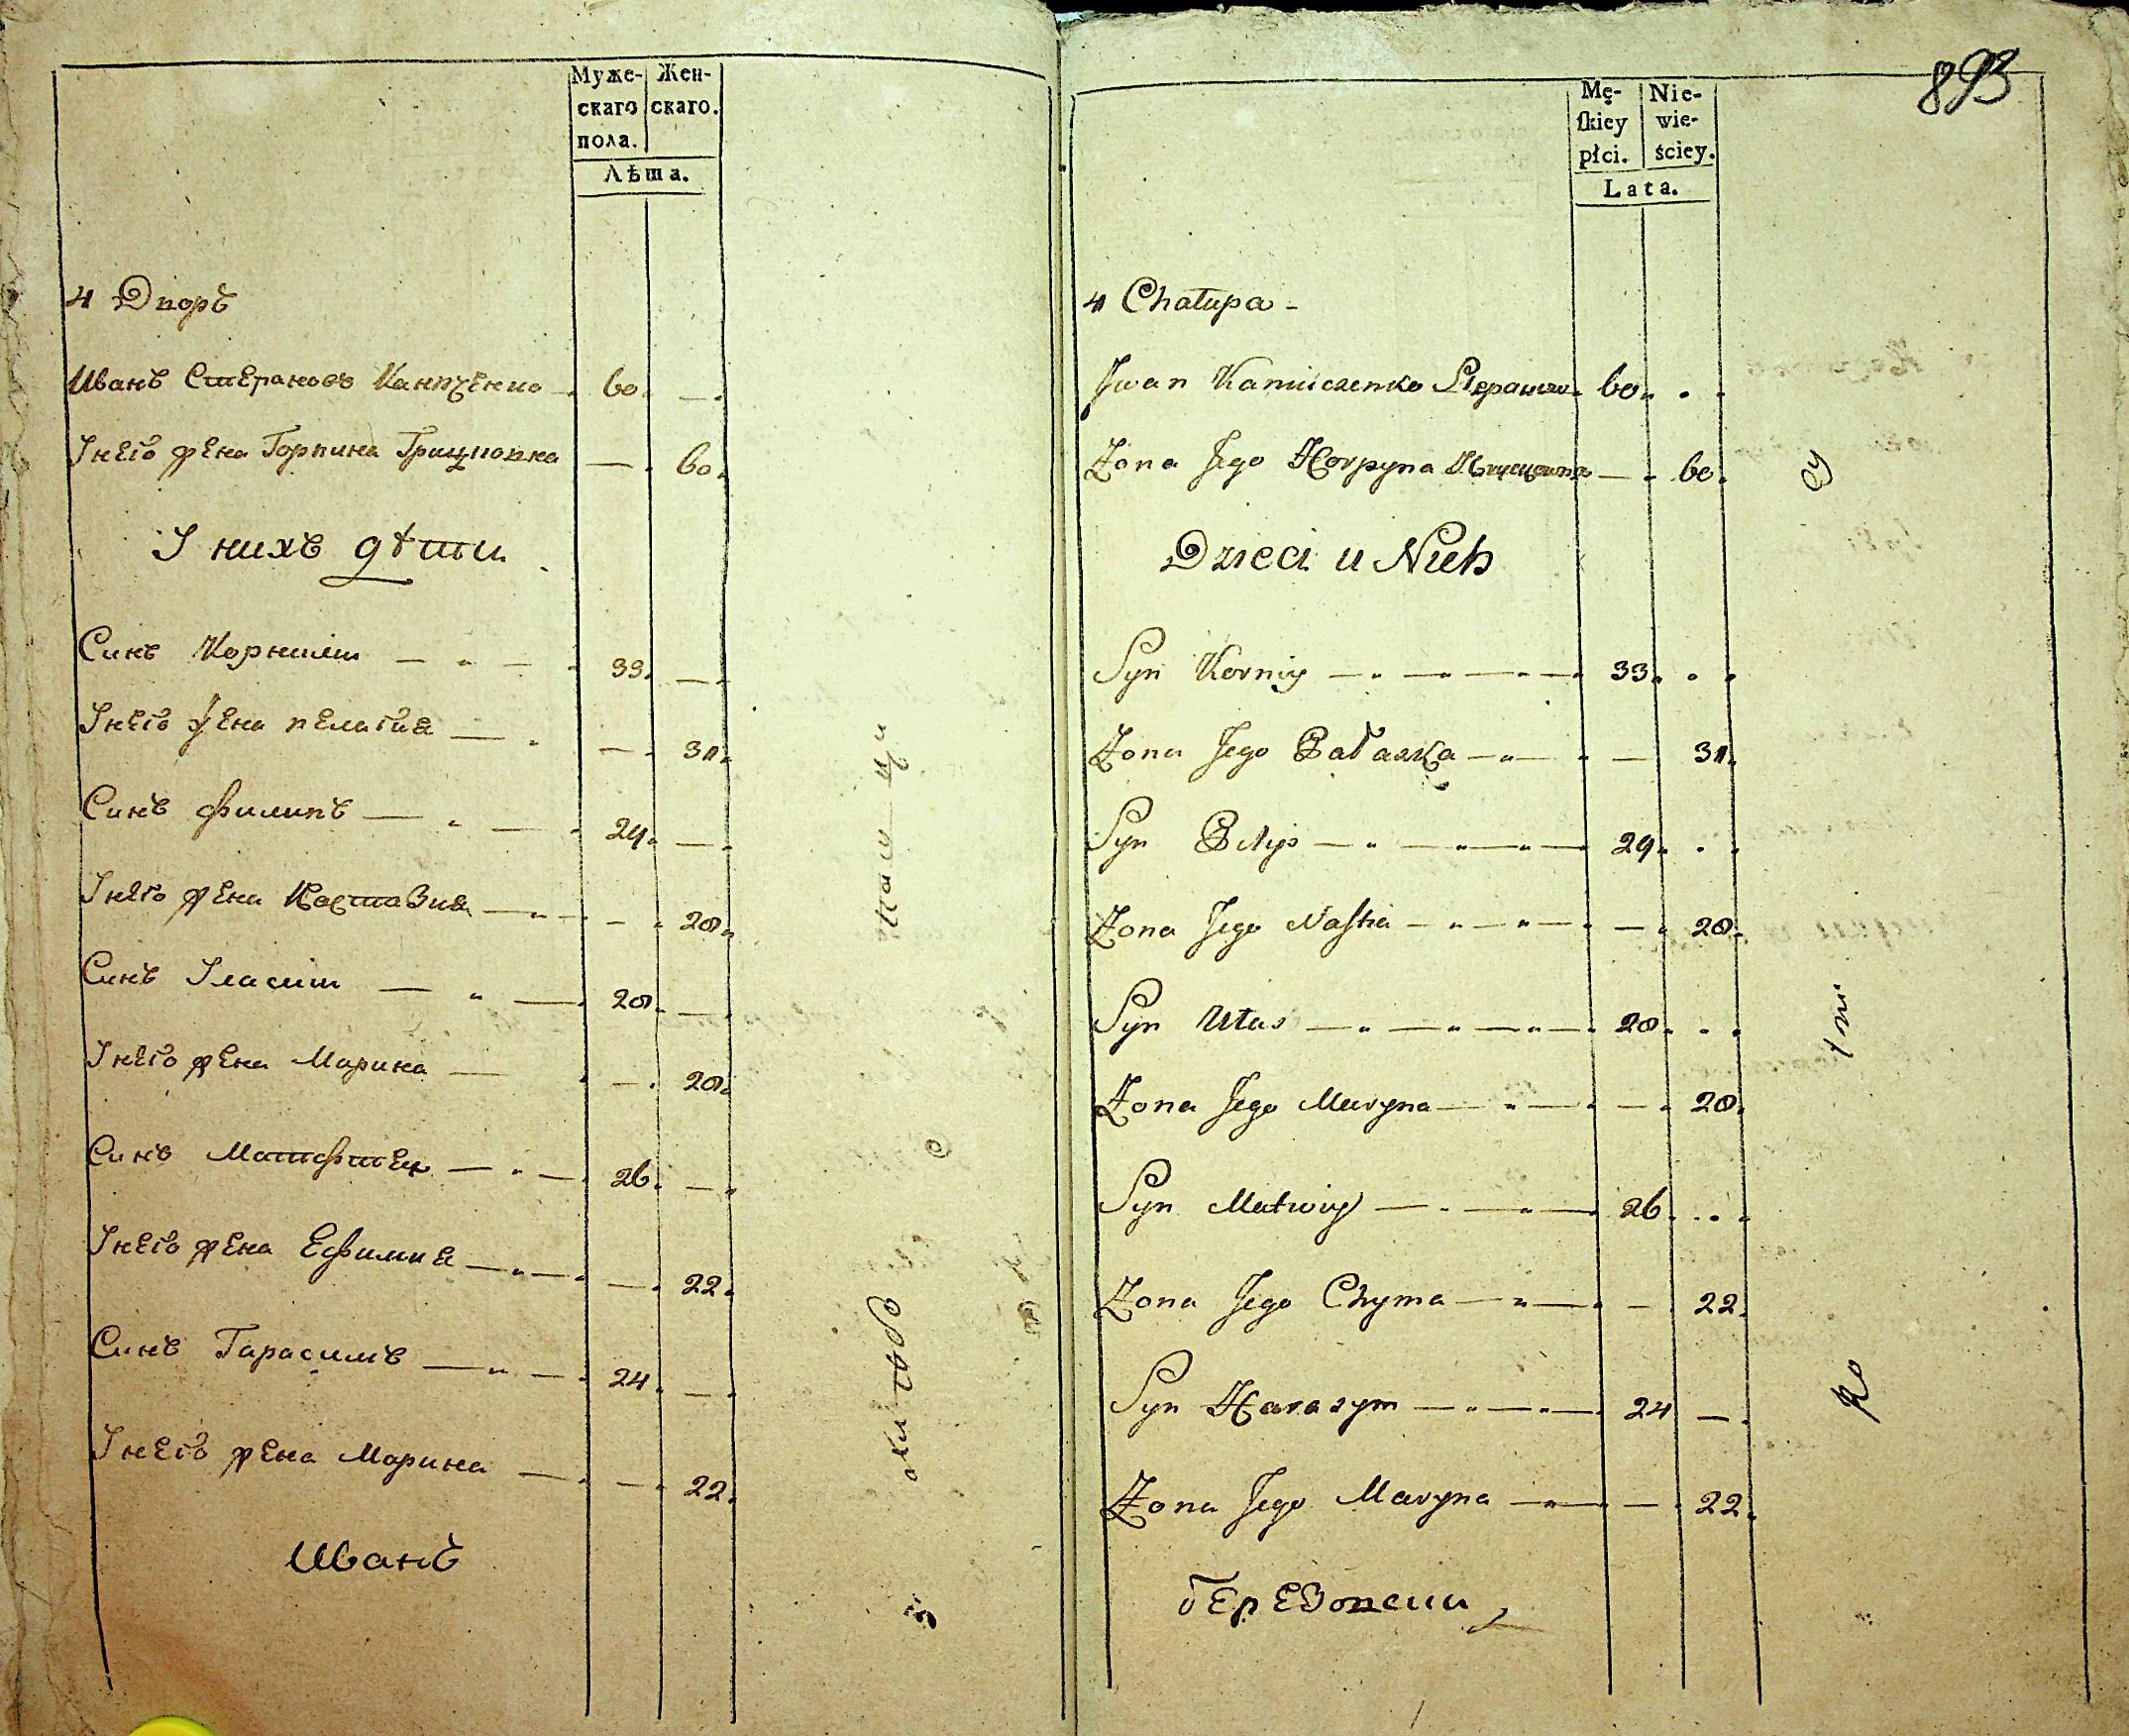 Муже-
скаго
пола.
Жен-
скаго.
Лѣта.
4 Дворъ
Иванъ Степановъ 60
У него жена Горпина Грицковна 60
У нихъ дѣти
Синъ Корнилій 33
У него жена Пелагия 31
Синъ Филипъ 29
У него жена Настазия 28
Синъ 28
У него жена Марина 28
Синъ Матфией 26
У него жена Ефимия 22
Синъ Гарасимъ 24
У него жена Марина 22
Иванъ
893
Mę-
ſkiey
płci.
Nie-
wie-
ściey.
Lata.
4 Chałupa
Iwan 60
Żona Jego Horpyna 60
Dzieci u Nich
Syn Korniy 33
Żona Jego Pałaszka 31
Syn Pilip 29
Żona Jego Naſtia 28
Syn Ułas 28
Żona Jego Maryna 28
Syn Matwiy 26
Żona Jego Chyma 22
Syn Harasym 24
Żona Jego Maryna 22